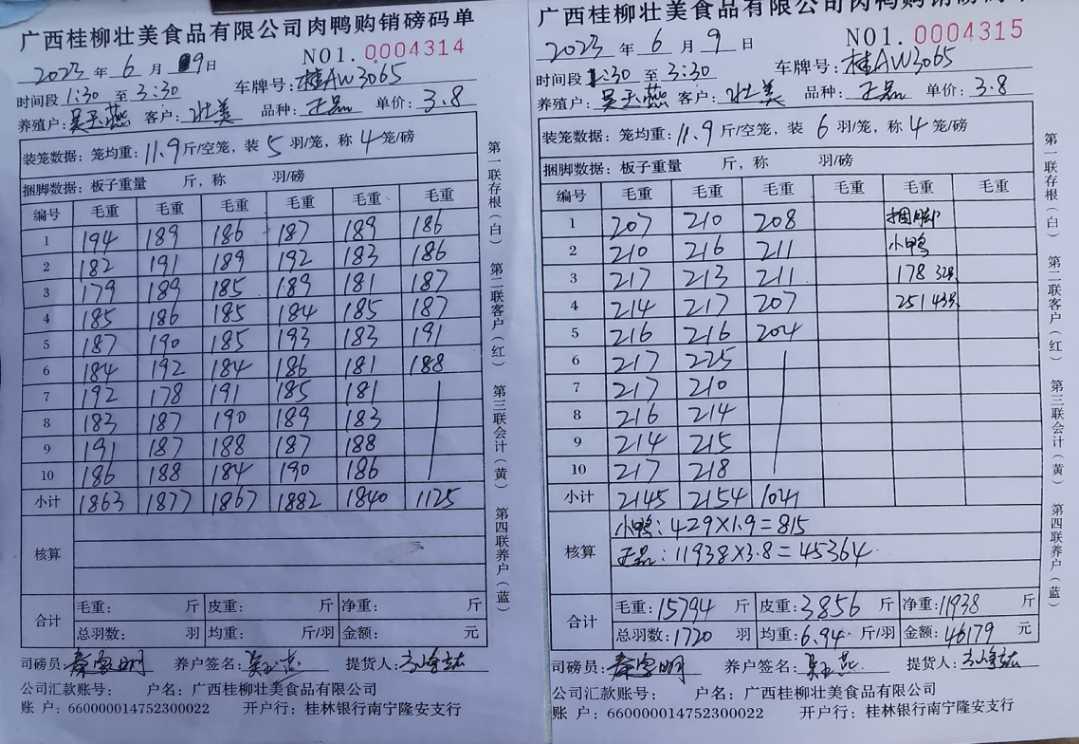 广西桂柳壮美食品有限公司肉鸭购销磅码单
NO1. 0004314
2023 年 6 月 9 日
车牌号: 桂AW3065
时间段 1:30 至 3:30
养殖户: 吴玉燕 客户: 壮美 品种: 正品 单价: 3.8
装笼数据: 笼均重: 11.9 斤/空笼, 装 5 羽/笼, 称 4 笼/磅
捆脚数据: 板子重量 斤, 称 羽/磅
编号 毛重 毛重 毛重 毛重 毛重 毛重
1 194 189 186 187 189 186
2 182 191 189 192 183 186
3 179 189 185 189 181 187
4 185 186 185 184 185 187
5 187 190 185 193 183 191
6 184 192 184 186 181 188
7 192 178 191 185 181
8 183 187 190 189 183
9 191 187 188 187 188
10 186 188 184 190 186
小计 1863 1877 1867 1882 1840 1125
核算
合计
毛重: 斤 皮重: 斤 净重: 斤
总羽数: 羽 均重: 斤/羽 金额: 元
司磅员: 养户签名: 吴玉燕 提货人:
公司汇款账号: 户名: 广西桂柳壮美食品有限公司
账 户: 660000014752300022 开户行: 桂林银行南宁隆安支行
第一联存根(白) 第二联客户(红) 第三联会计(黄) 第四联养户(蓝)
广西桂柳壮美食品有限公司肉鸭购销磅码单
NO1. 0004315
2023 年 6 月 9 日
车牌号: 桂AW3065
时间段 1:30 至 3:30
养殖户: 吴玉燕 客户: 壮美 品种: 正品 单价: 3.8
装笼数据: 笼均重: 11.9 斤/空笼, 装 6 羽/笼, 称 4 笼/磅
捆脚数据: 板子重量 斤, 称 羽/磅
编号 毛重 毛重 毛重 毛重 毛重 毛重
1 207 210 208 捆脚
2 210 216 211 小鸭
3 217 213 211 178 32羽
4 214 217 207 251 43羽
5 216 216 204
6 217 225
7 217 210
8 216 214
9 214 215
10 217 218
小计 2145 2154 1041
核算
小鸭: 429×1.9=815
正品: 11938×3.8=45364
合计
毛重: 15794 斤 皮重: 3856 斤 净重: 11938 斤
总羽数: 1720 羽 均重: 6.94 斤/羽 金额: 46179 元
司磅员: 养户签名: 吴玉燕 提货人:
公司汇款账号: 户名: 广西桂柳壮美食品有限公司
账 户: 660000014752300022 开户行: 桂林银行南宁隆安支行
第一联存根(白) 第二联客户(红) 第三联会计(黄) 第四联养户(蓝)